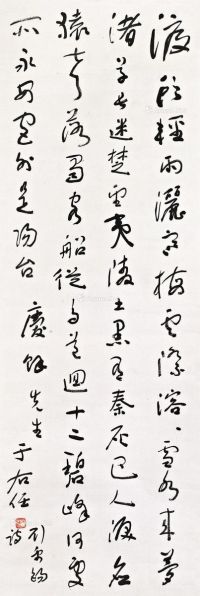 渡頭輕雨灑寒梅雲際溶々雪水來夢
渚草長迷楚望夷陵土黑有秦灰巴人淚應
猿聲落蜀客船從鳥道迴十二碧峰何處
所永安宮外是陽台 慶餘先生 于右任
劉禹錫詩